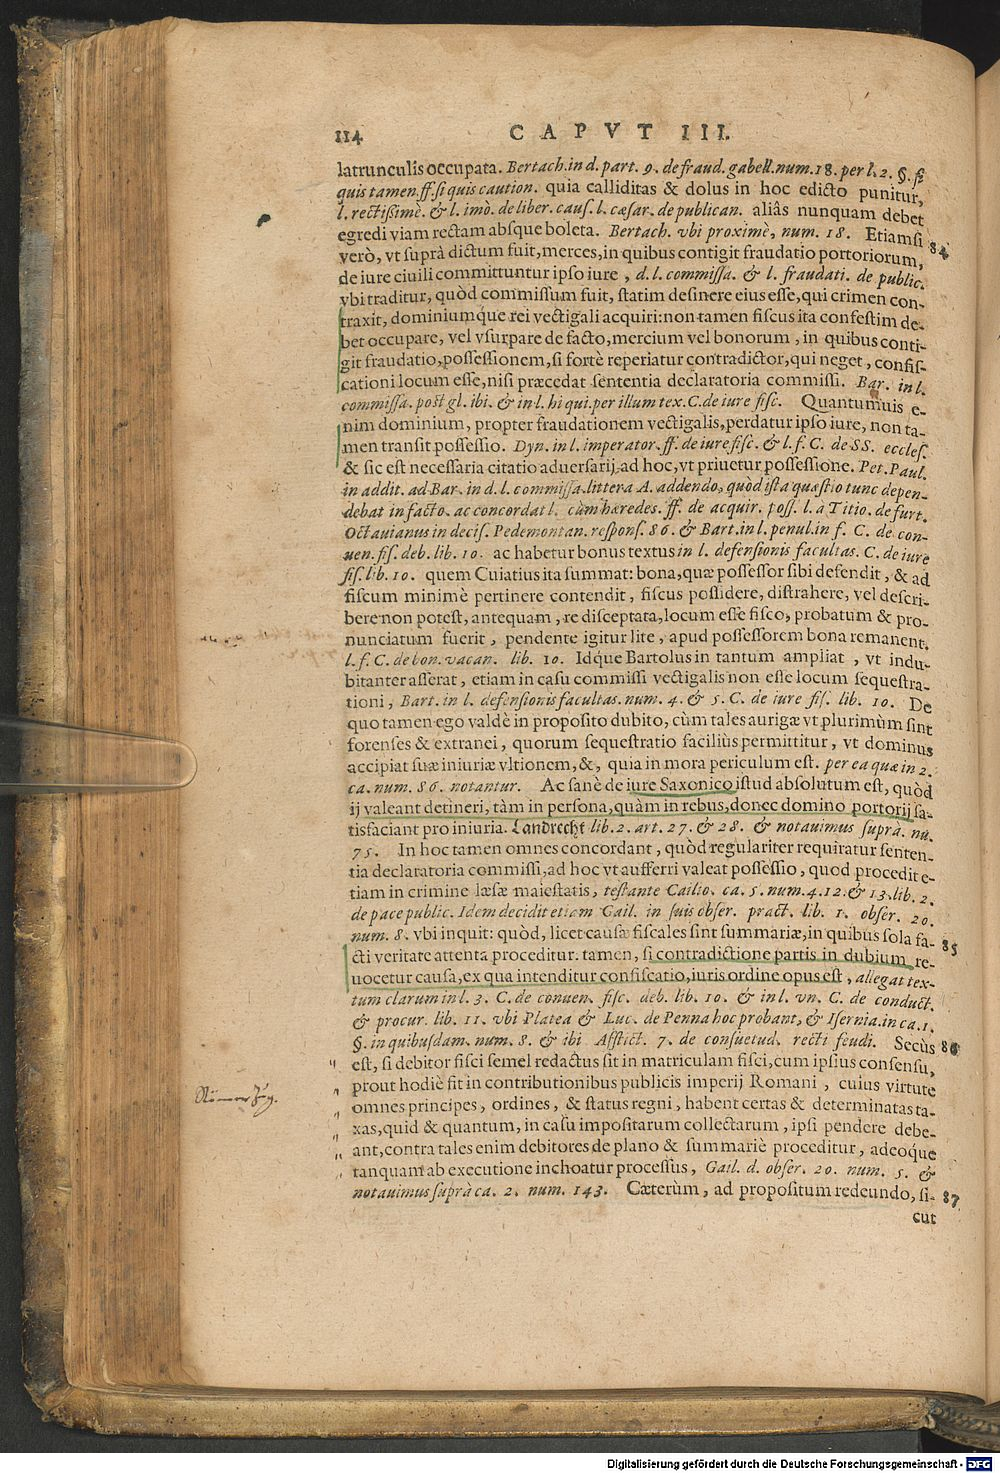 114 CAPVT III.
latrunculis occupata. Bertach. in d. part. 9. de fraud. gabell. num. 18. per l. 2. §. si
quis tamen. ff. si quis caution. quia calliditas & dolus in hoc edicto punitur,
l. rectißimè. & l. imò. de liber. cauſ. l. cæſar. de publican. aliâs nunquam debet
egredi viam rectam abſque boleta. Bertach. vbi proximè, num. 18. Etiamſi 84
verò, vt ſuprà dictum fuit, merces, in quibus contigit fraudatio portoriorum,
de iure ciuili committuntur ipſo iure, d. l. commiſſa. & l. fraudati. de public.
vbi traditur, quòd commiſſum fuit, ſtatim deſinere eius eſſe, qui crimen con-
traxit, dominiumque rei vectigali acquiri: non tamen fiſcus ita confeſtim de-
bet occupare, vel vſurpare de facto, mercium vel bonorum, in quibus conti-
git fraudatio, poſſeſſionem, ſi fortè reperiatur contradictor, qui neget, confiſ-
cationi locum eſſe, niſi præcedat ſententia declaratoria commiſſi. Bar. in l.
commiſſa. poſt gl. ibi. & in l. hi qui. per illum tex. C. de iure fiſc. Quantumuis e-
nim dominium, propter fraudationem vectigalis, perdatur ipſo iure, non ta-
men tranſit poſſeſſio. Dyn. in l. imperator. ff. de iure fiſc. & l. f. C. de SS. eccleſ.
& ſic eſt neceſſaria citatio aduerſarij ad hoc, vt priuetur poſſeſſione. Pet. Paul.
in addit. ad Bar. in d. l. commiſſa. littera A. addendo, quòd iſta quæſtio tunc depen-
debat in facto. ac concordat l. cùm hæredes. ff. de acquir. poſſ. l. à Titio. de furt.
Octauianus in deciſ. Pedemontan. reſponſ. 86. & Bart. in l. penul. in f. C. de con-
uen. fiſ. deb. lib. 10. ac habetur bonus textus in l. defenſionis facultas. C. de iure
fiſ. lib. 10. quem Cuiatius ita ſummat: bona, quæ poſſeſſor ſibi defendit, & ad
fiſcum minimè pertinere contendit, fiſcus poſſidere, diſtrahere, vel deſcri-
bere non poteſt, antequam, re diſceptata, locum eſſe fiſco, probatum & pro-
nunciatum fuerit, pendente igitur lite, apud poſſeſſorem bona remanent.
l. f. C. de bon. vacan. lib. 10. Idque Bartolus in tantum ampliat, vt indu-
bitanter aſſerat, etiam in caſu commiſſi vectigalis non eſſe locum ſequeſtra-
tioni, Bart. in l. defenſionis facultas. num. 4. & 5. C. de iure fiſ. lib. 10. De
quo tamen ego valdè in propoſito dubito, cùm tales aurigæ vt plurimùm ſint
forenſes & extranei, quorum ſequeſtratio faciliùs permittitur, vt dominus
accipiat ſuæ iniuriæ vltionem, &, quia in mora periculum eſt. per ea quæ in 2.
ca. num. 86. notantur. Ac ſanè de iure Saxonico iſtud abſolutum eſt, quòd
ij valeant detineri, tàm in perſona, quàm in rebus, donec domino portorij ſa-
tisfaciant pro iniuria. Landrecht lib. 2. art. 27. & 28. & notauimus ſuprà. nu.
75. In hoc tamen omnes concordant, quòd regulariter requiratur ſenten-
tia declaratoria commiſſi, ad hoc vt aufferri valeat poſſeſſio, quod procedit e-
tiam in crimine læſæ maieſtatis, teſtante Cailio. ca. 5. num. 4. 12. & 13. lib. 2.
de pace public. Idem decidit etiam Gail. in ſuis obſer. pract. lib. 1. obſer. 20.
num. 8. vbi inquit: quòd, licet cauſæ fiſcales ſint ſummariæ, in quibus ſola fa- 85
cti veritate attenta proceditur. tamen, ſi contradictione partis in dubium re-
uocetur cauſa, ex qua intenditur confiſcatio, iuris ordine opus eſt, allegat tex-
tum clarum in l. 3. C. de conuen. fiſc. deb. lib. 10. & in l. vn. C. de conduct.
& procur. lib. 11. vbi Platea & Luc. de Penna hoc probant, & Iſernia. in ca. 1.
§. in quibuſdam. num. 8. & ibi Afflict. 7. de conſuetud. recti feudi. Secùs 86
eſt, ſi debitor fiſci ſemel redactus ſit in matriculam fiſci, cum ipſius conſenſu,
prout hodiè fit in contributionibus publicis imperij Romani, cuius virtute
omnes principes, ordines, & ſtatus regni, habent certas & determinatas ta-
xas, quid & quantum, in caſu impoſitarum collectarum, ipſi pendere debe-
ant, contra tales enim debitores de plano & ſummariè proceditur, adeoque
tanquam ab executione inchoatur proceſſus, Gail. d. obſer. 20. num. 5. &
notauimus ſuprà ca. 2. num. 143. Cæterùm, ad propoſitum redeundo, ſi- 87
cut
Digitalisierung gefördert durch die Deutsche Forschungsgemeinschaft - DFG